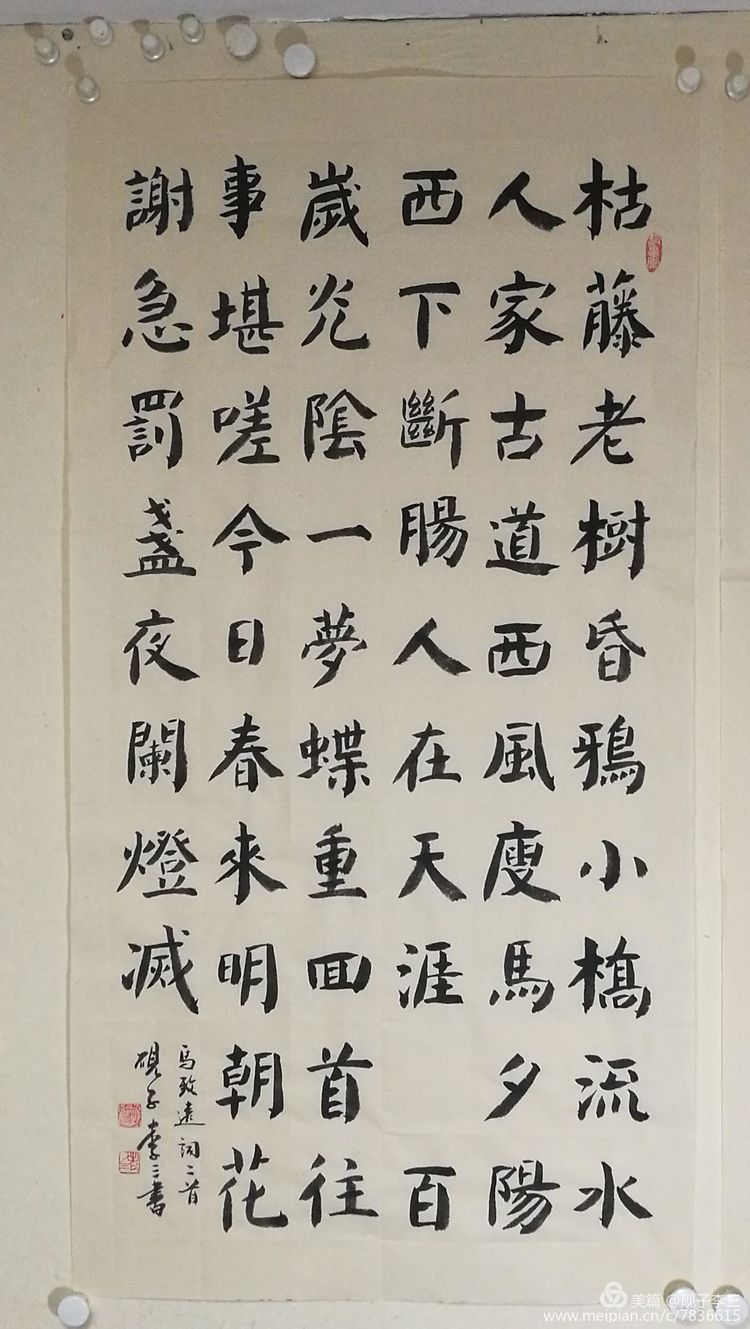 枯藤老樹昏鴉小橋流水
人家古道西風廋馬夕陽
西下斷腸人在天涯 百
歲光陰一夢蝶重囬首往
事堪嗟今日春來明朝花
謝急罰盞夜闌燈滅
馬致遠詞二首
硯子李三書
美篇 @砚子李三
www.meipian.cn/c/7836615